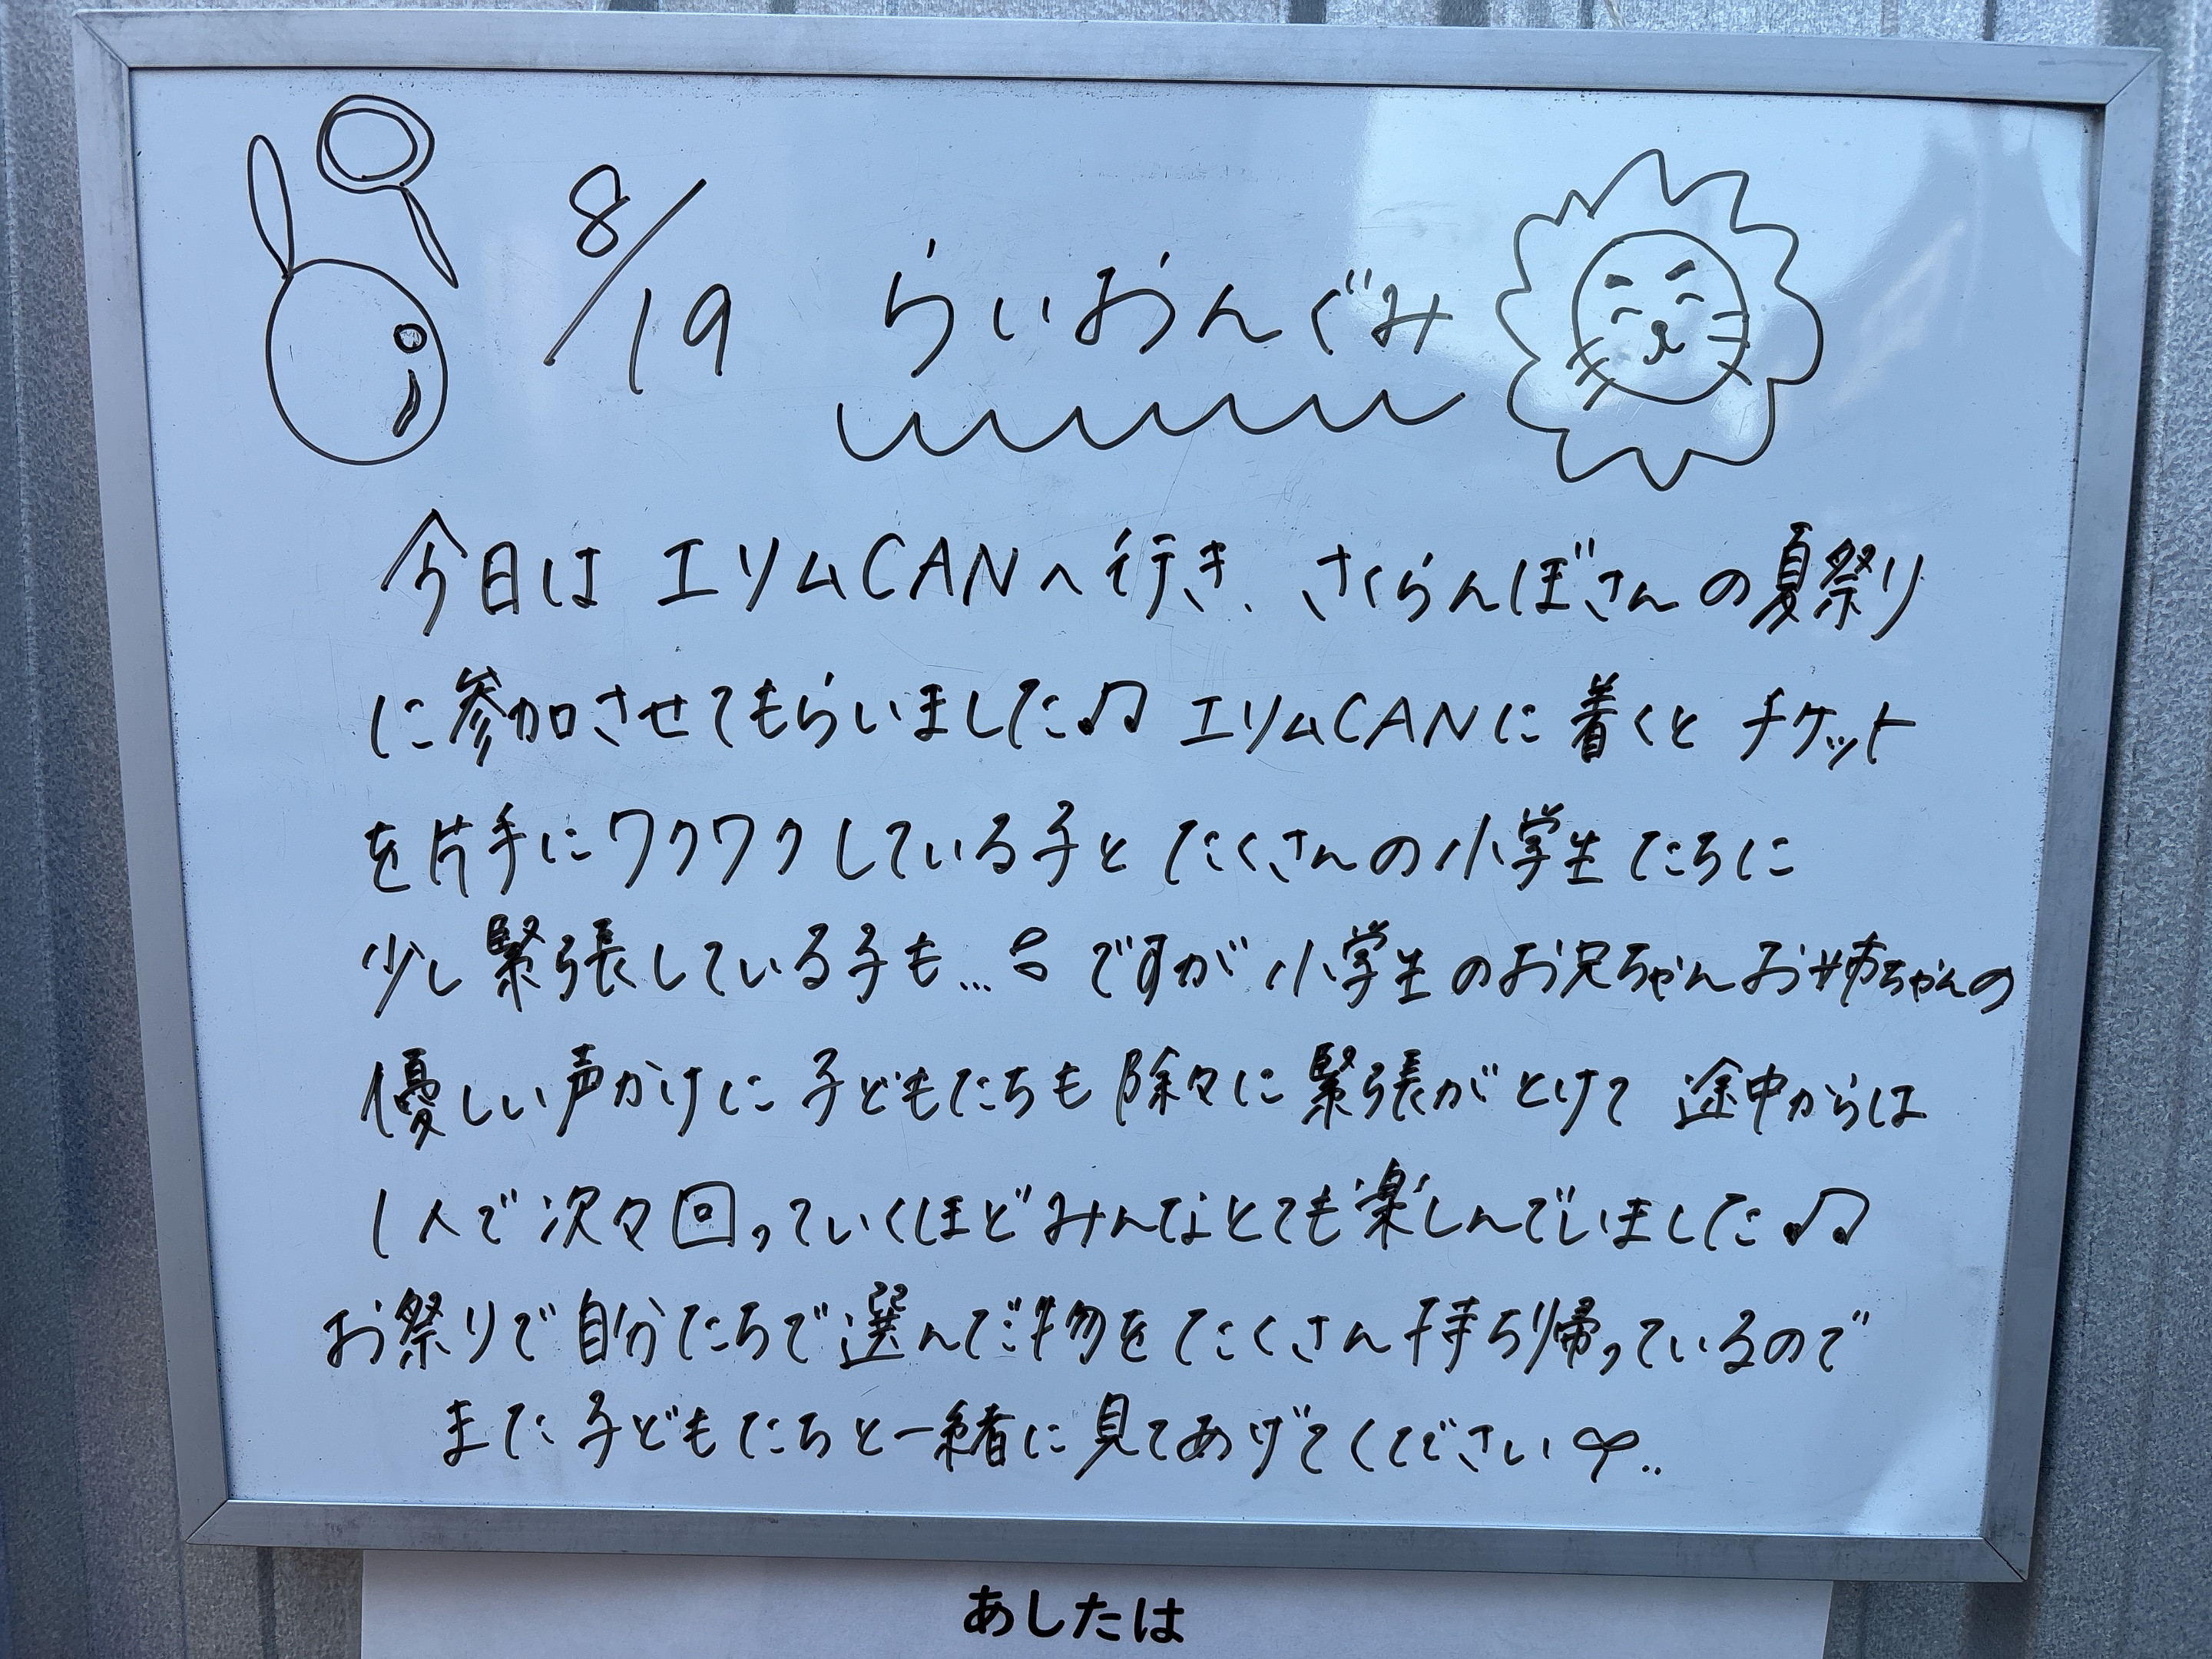 8/19 らいおんぐみ
今日は エリムCANへ行き、さくらんぼさんの夏祭り
に参加させてもらいました♫ エリムCANに着くと チケット
を片手にワクワクしている子と たくさんの小学生たちに
少し緊張している子も… ですが小学生のお兄ちゃんお姉ちゃんの
優しい声かけに 子どもたちも 除々に緊張がとけて 途中からは
1人で次々回っていくほどみんなとても楽しんでいました♫
お祭りで自分たちで選んだ物をたくさん持ち帰っているので
また子どもたちと一緒に見てあげてください
あしたは